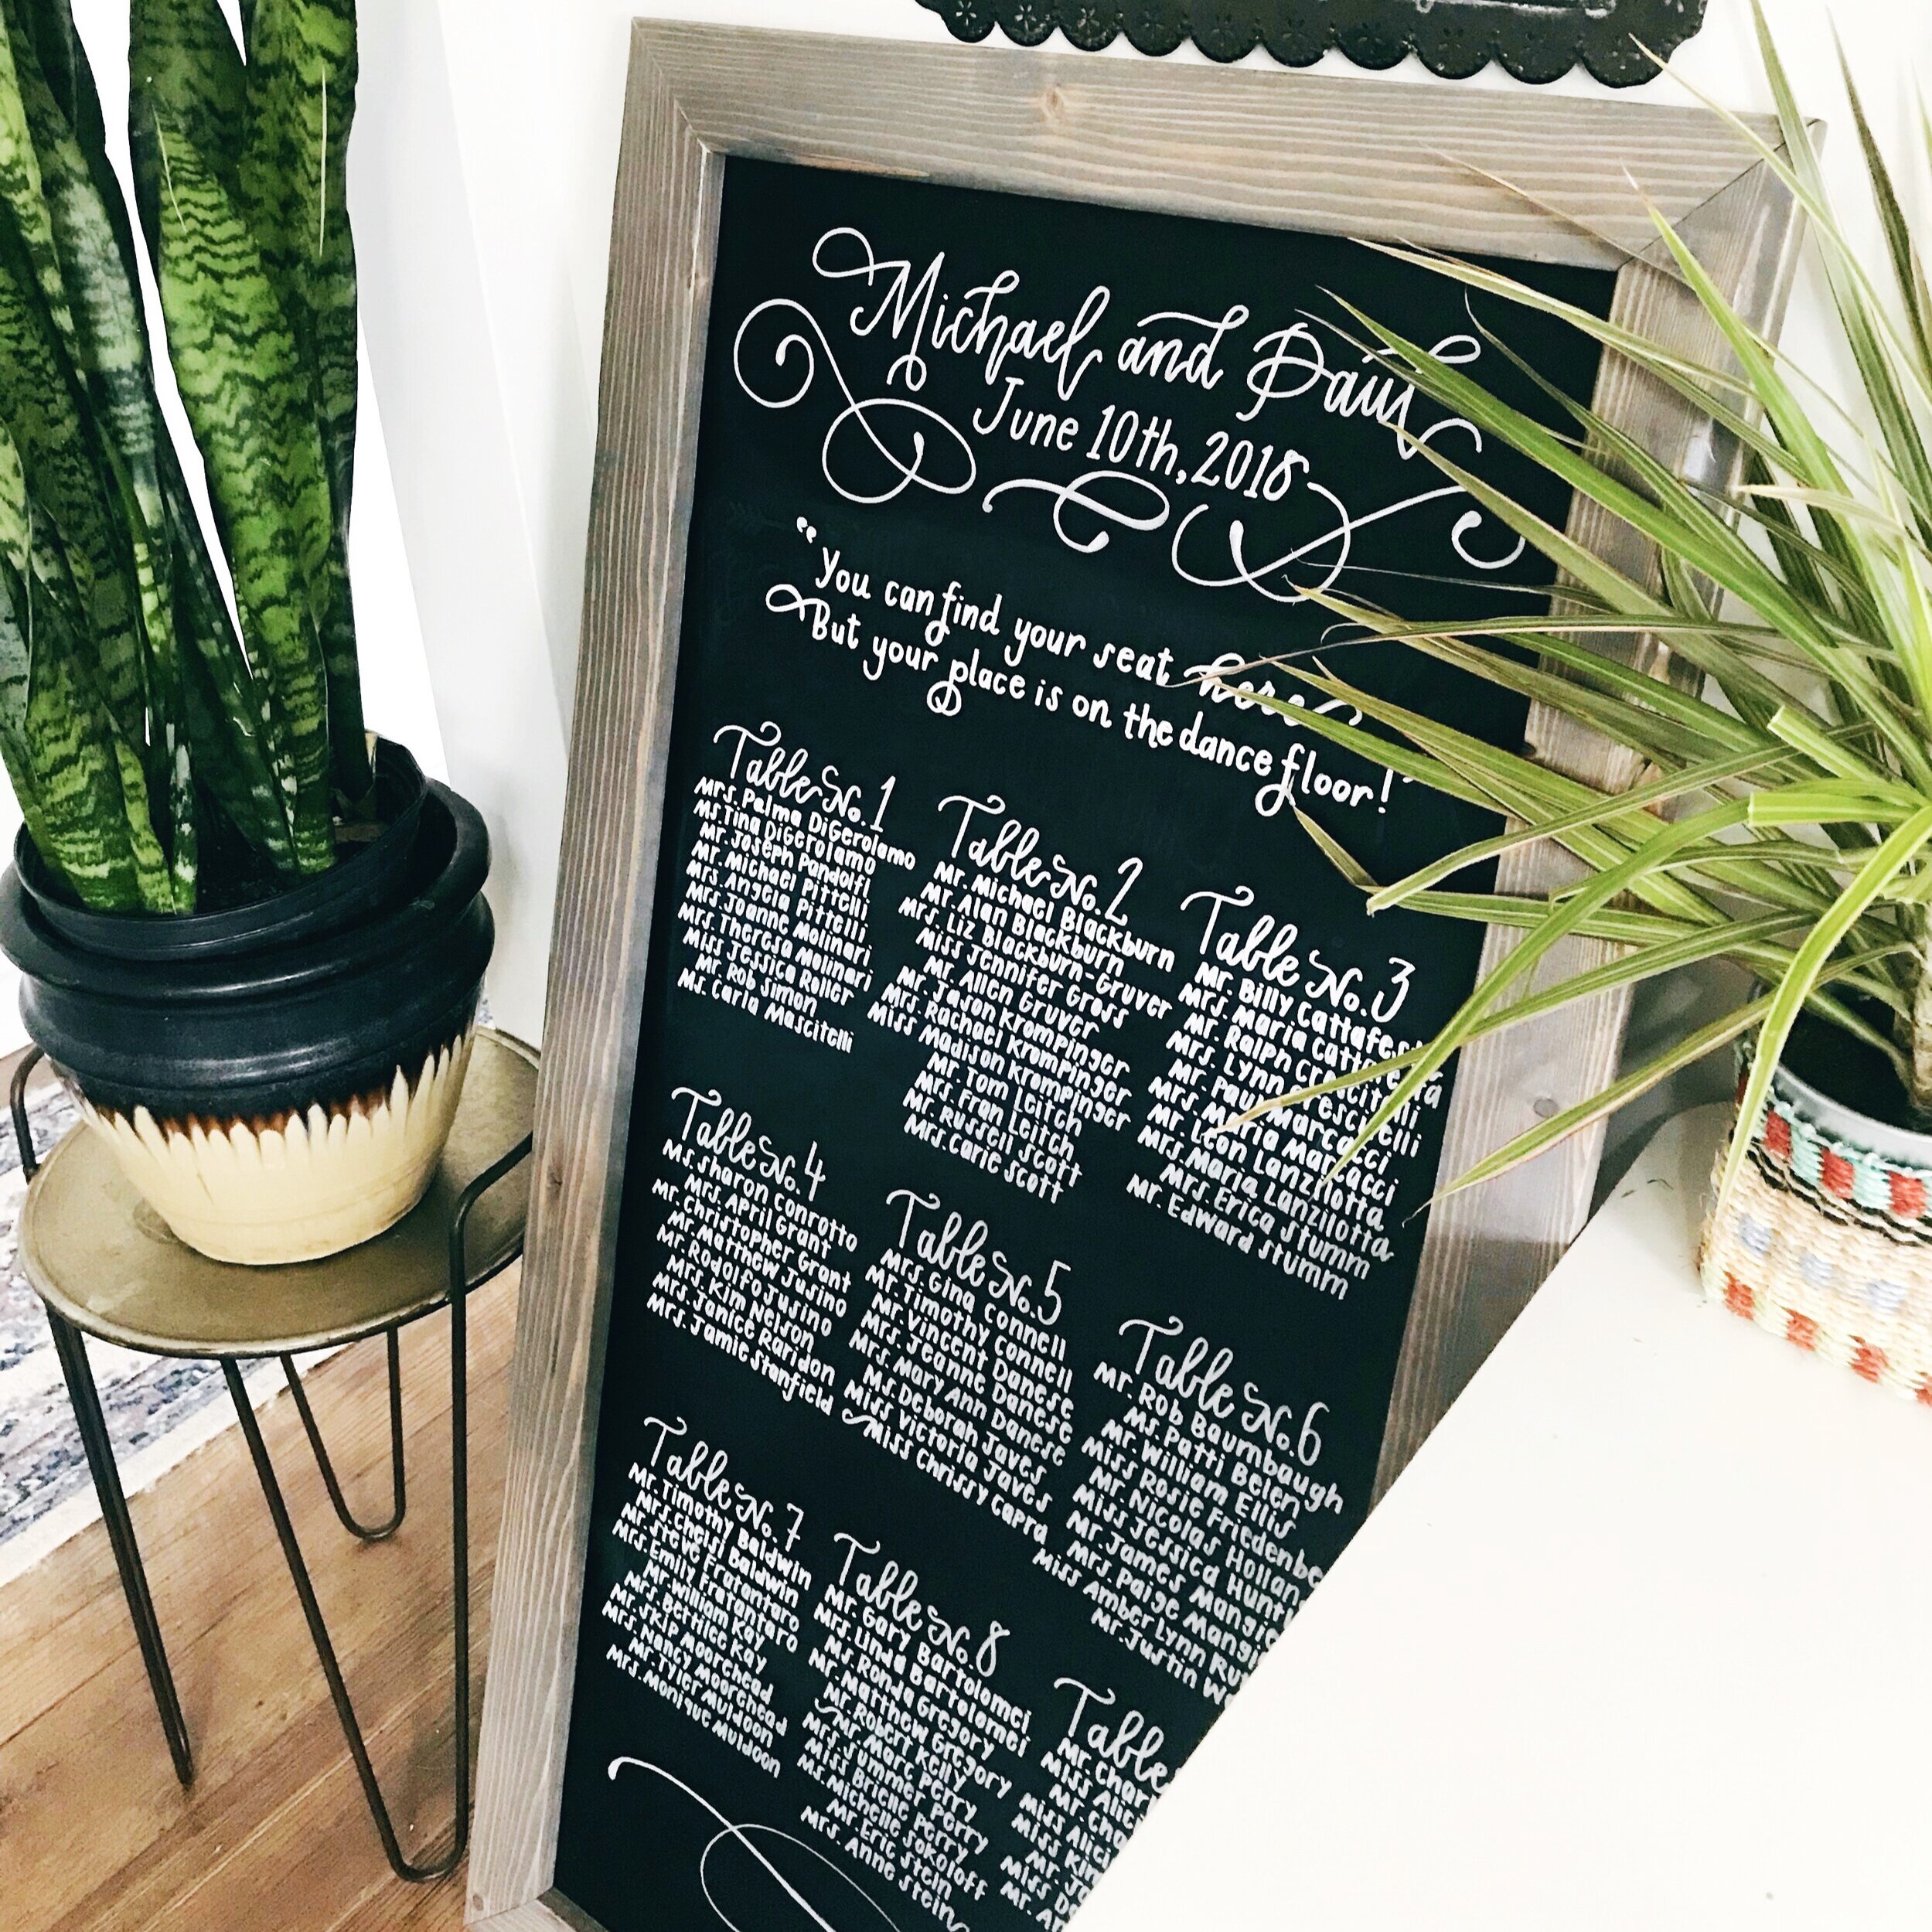 Michael and Paul
June 10th, 2018
"You can find your seat here
But your place is on the dance floor!"
Table No. 1
Mrs. Palma DiGerolamo
Ms. Tina DiGerolamo
Mr. Joseph Pandolfi
Mr. Michael Pittelli
Mrs. Angela Pittelli
Mrs. Joanne Molinari
Mrs. Theresa Molinari
Miss Jessica Roller
Mr. Rob Simon
Ms. Carla Mascitelli
Table No. 2
Mr. Michael Blackburn
Mr. Alan Blackburn
Mrs. Liz Blackburn-Gruver
Miss Jennifer Gross
Mr. Allen Gruver
Mr. Jason Krompinger
Mrs. Rachael Krompinger
Miss Madison Krompinger
Mr. Tom Leitch
Mrs. Fran Leitch
Mr. Russell Scott
Mrs. Carie Scott
Table No. 3
Mr. Billy
Mrs. Maria
Mr. Ralph Crescitelli
Mrs. Lynn Crescitelli
Mr. Paul Marcacci
Mrs. Maria Marcacci
Mr. Leon Lanzilotta
Mrs. Maria Lanzilotta
Mrs. Erica Stumm
Mr. Edward Stumm
Table No. 4
Ms. Sharon Conrotto
Mrs. April Grant
Mr. Christopher Grant
Mr. Matthew Jusino
Mr Rodolfo Jusino
Mrs. Kim Nelson
Mrs. Janice Raridon
Mrs. Jamie Stanfield
Table No. 5
Mrs. Gina Connell
Mr. Timothy Connell
Mr. Vincent Danese
Mrs. Jeanne Danese
Mrs. Mary Ann Danese
Ms. Deborah Javes
Miss Victoria Javes
Miss Chrissy Capra
Table No. 6
Mr. Rob Baumbaugh
Ms. Patti Belen
Mr. William Ellis
Miss Rosie
Mr. Nicolas
Miss Jessica
Mr. James
Mrs. Paige
Miss Amber Lynn
Mr. Justin
Table No. 7
Mr. Timothy Baldwin
Mrs. Chelsi Baldwin
Mr. Steve Fratantaro
Mrs. Emily Fratantaro
Mr William Kay
Mrs. Bettie Kay
Mr. Skip Moorehead
Mrs. Nancy Moorehead
Mr. Tyler Muldoon
Mrs. Monique Muldoon
Table No. 8
Mr. Gary Bartolomei
Mrs. Linda Bartolomei
Ms. Ronda Gregory
Mr. Matthew Gregory
Mr. Robert Kelly
Mr Marc Perry
Mrs. Summer Perry
Miss Brielle Perry
Ms. Michelle Sokoloff
Mr. Eric Stein
Mrs. Anne Stein
Table
Mr.
Miss
Mr.
Miss
Miss
Mr.
Miss
Mr.